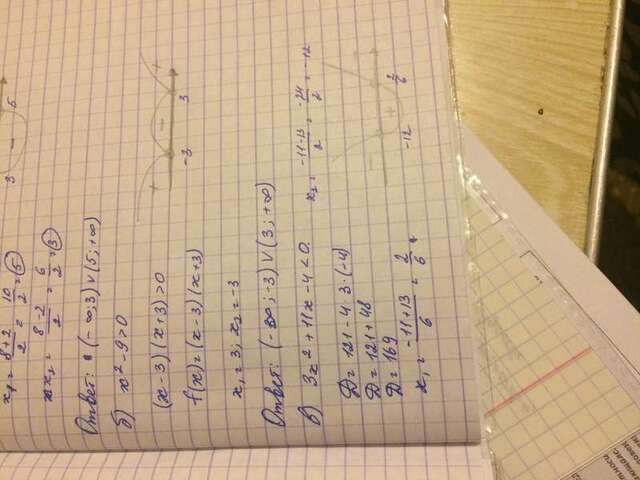 x₁ = 8+2/2 = 10/2 = 5
x₂ = 8-2/2 = 6/2 = 3
3 - 5
Ответ: (-∞;3) ∨ (5;+∞)
б) x²-9>0
(x-3)(x+3)>0
f(x)=(x-3)(x+3)
x₁=3; x₂=-3
+ - +
-3 3
Ответ: (-∞;-3) ∨ (3;+∞)
в) 3x²+11x-4<0.
D = 121-4·3·(-4)
D = 121+48
D = 169
x₁ = -11+13/6 = 2/6
x₂ = -11-13/2 = -24/2 = -12
- + -
-12 2/6